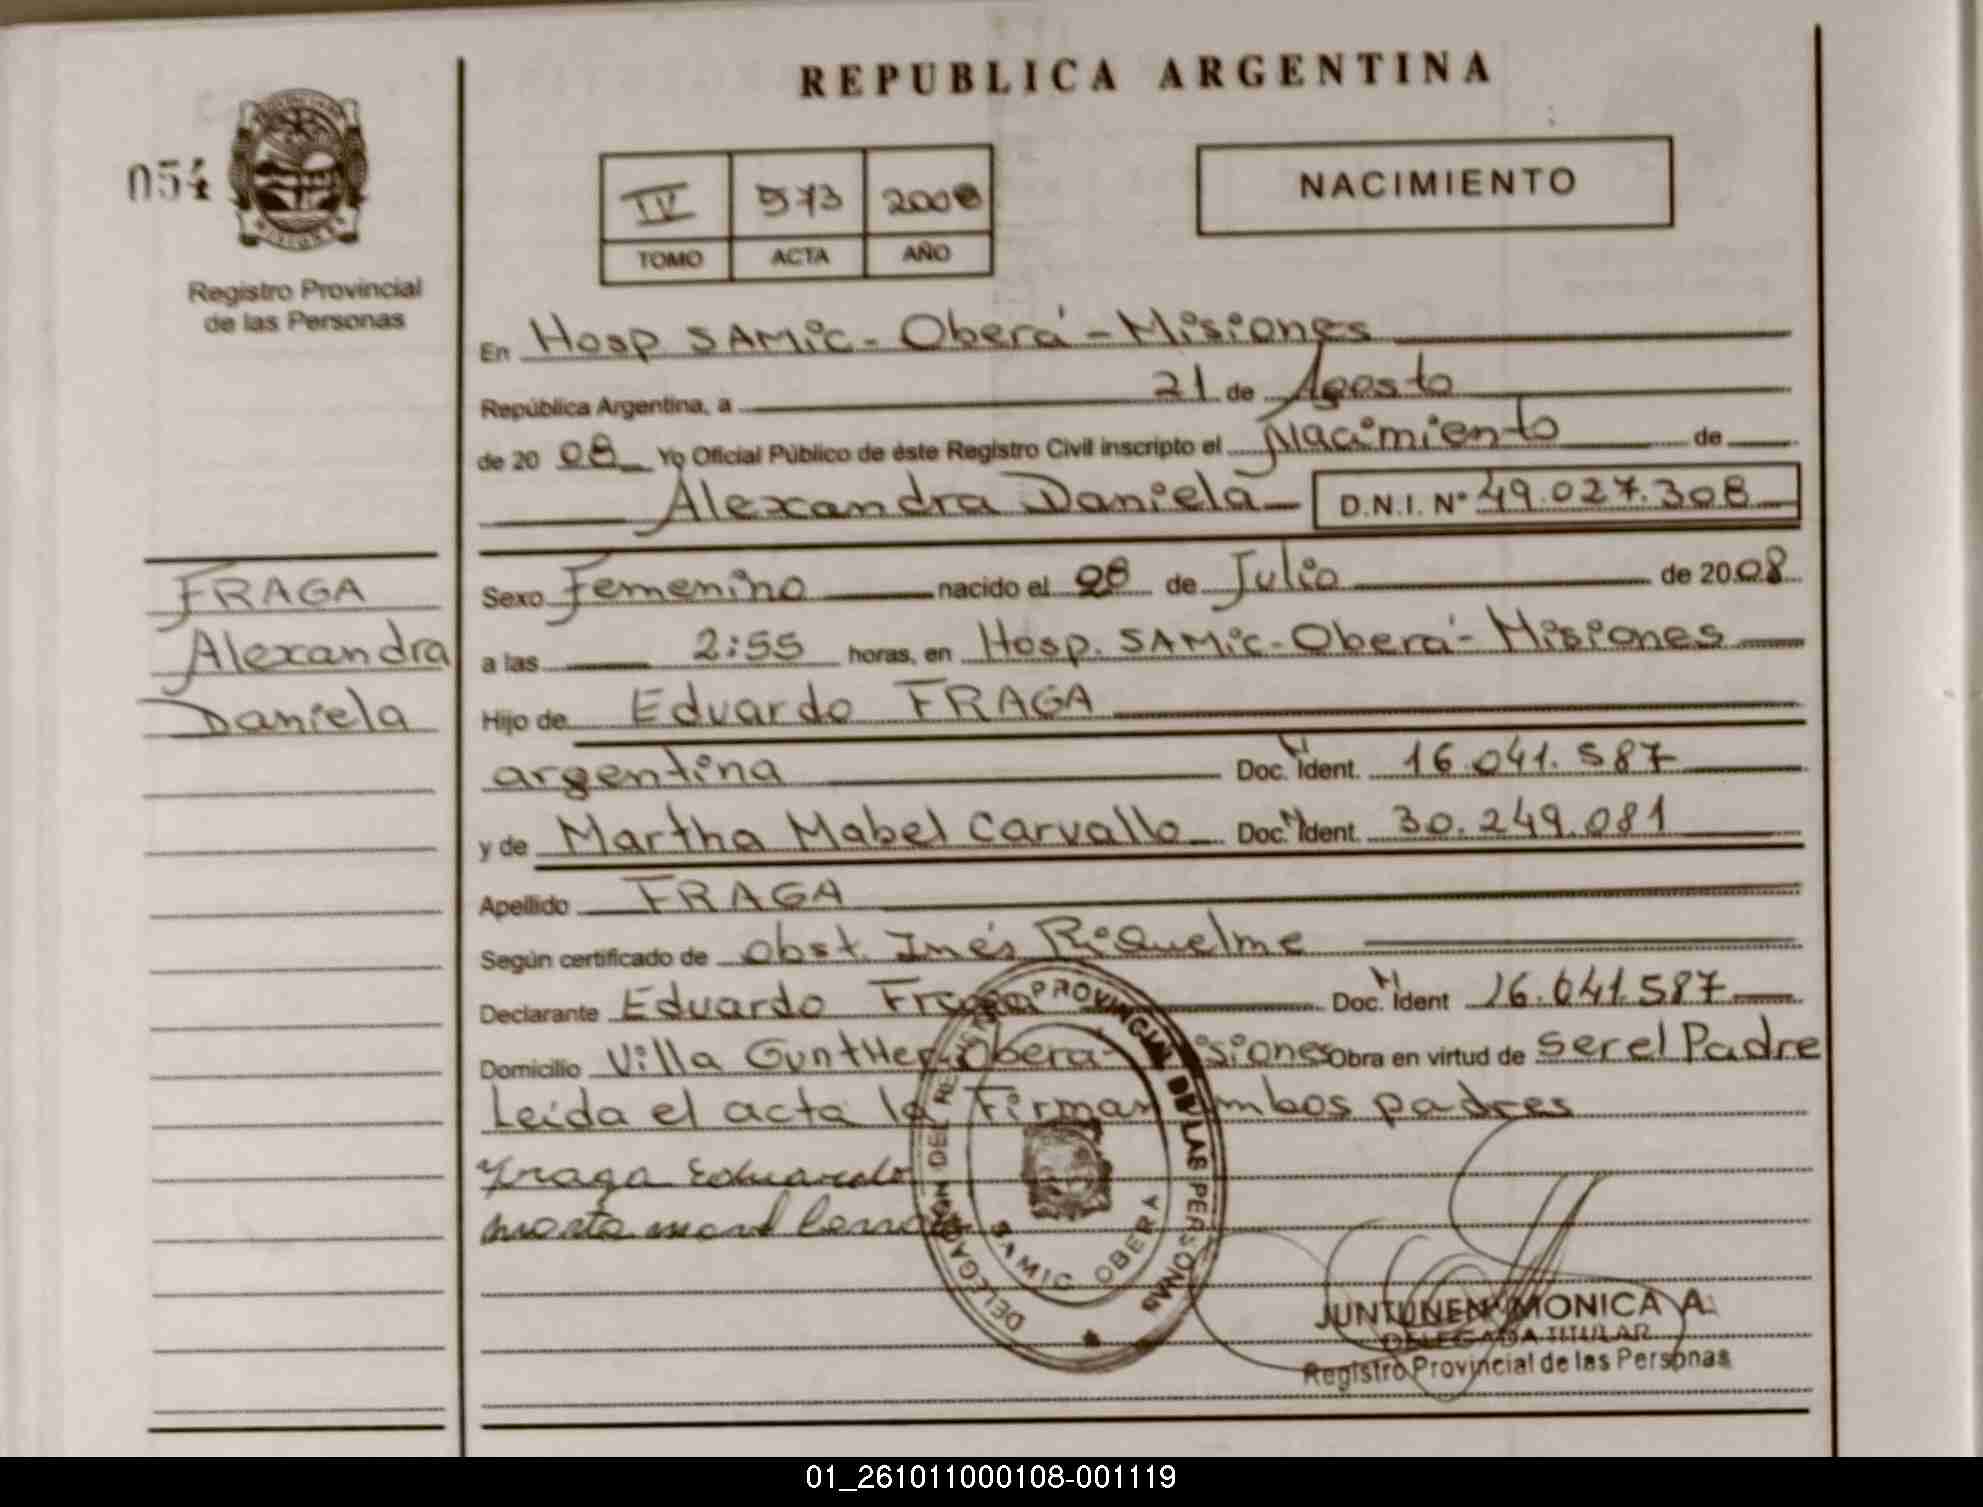 REPUBLICA ARGENTINA
054
IV 573 2008
TOMO ACTA AÑO
NACIMIENTO
Registro Provincial
de las Personas
En Hosp SAMic - Oberá - Misiones
República Argentina, a 21 de Agosto
de 20 08 Yo Oficial Público de éste Registro Civil inscripto el Nacimiento de
Alexandra Daniela D.N.I. N° 49.027.308
FRAGA
Alexandra
Daniela
Sexo Femenino nacido el 28 de Julio de 2008
a las 2:55 horas, en Hosp. SAMic - Oberá - Misiones
Hijo de Eduardo FRAGA
argentina Doc. Ident. 16.041.587
y de Martha Mabel Carvallo Doc. Ident. 30.249.081
Apellido FRAGA
Según certificado de Obst. Inés Riquelme
Declarante Eduardo Fraga Doc. Ident 16.041.587
Domicilio Villa Gunther - Obera - Obra en virtud de ser el Padre
Leida el acta la Firman ambos padres
Fraga Eduardo
DELEGACION DEL REGISTRO PROVINCIAL DE LAS PERSONAS
SAMIC OBERA
JUNTUNEN MONICA A.
DELEGADA TITULAR
Registro Provincial de las Personas
01_261011000108-001119